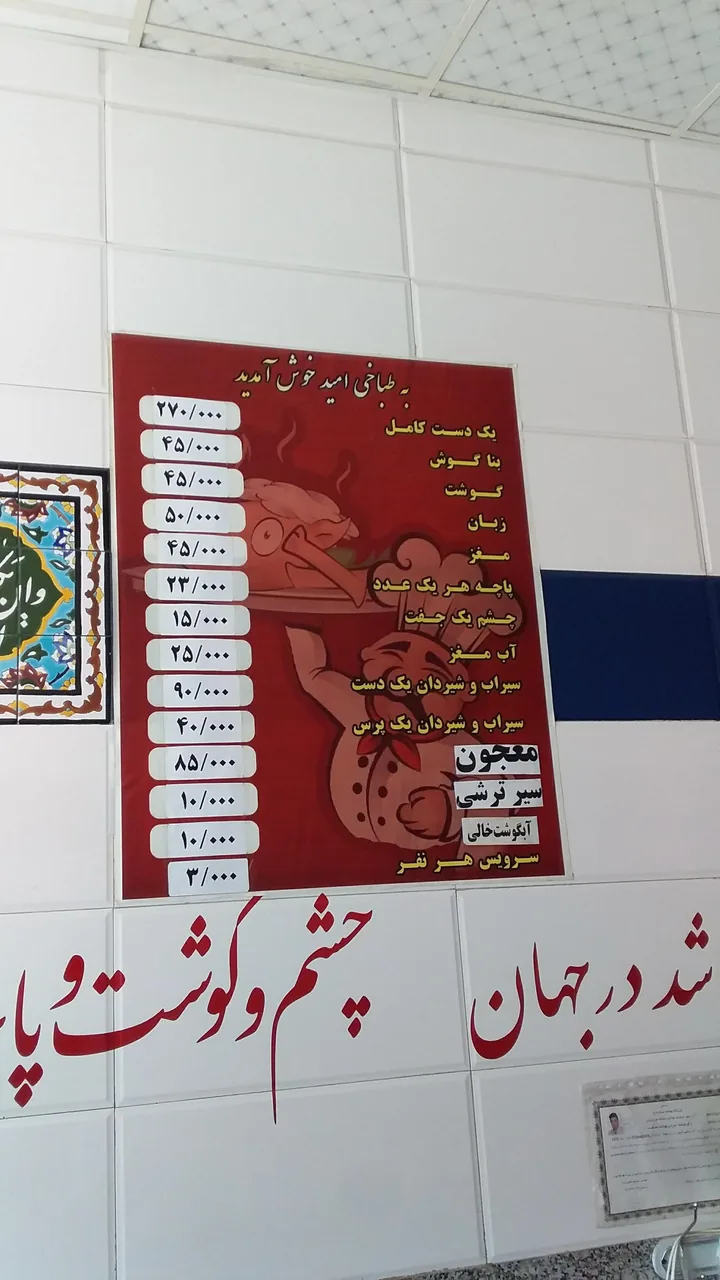 به طباخی امید خوش آمدید
یک دست کامل ۲۷۰/۰۰۰
بنا گوش ۴۵/۰۰۰
گوشت ۴۵/۰۰۰
زبان ۵۰/۰۰۰
مغز ۴۵/۰۰۰
پاچه هر یک عدد ۲۳/۰۰۰
چشم یک جفت ۱۵/۰۰۰
آب مغز ۲۵/۰۰۰
سیراب و شیردان یک دست ۹۰/۰۰۰
سیراب و شیردان یک پرس ۴۰/۰۰۰
معجون ۸۵/۰۰۰
سیر ترشی ۱۰/۰۰۰
آبگوشت خالی ۱۰/۰۰۰
سرویس هر نفر ۳/۰۰۰
شد در جهان چشم و گوشت و